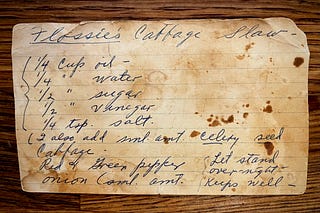 Flossies Cabbage Slaw -
1/4 Cup oil -
1/4 " water
1/2 " sugar
1/2 " vanegar
1/4 tsp. salt.
(I also add sml amt. celery seed
Cabbage -
Red & Green pepper
onion (sml. amt.
(Let stand
overnight -
Keeps well -